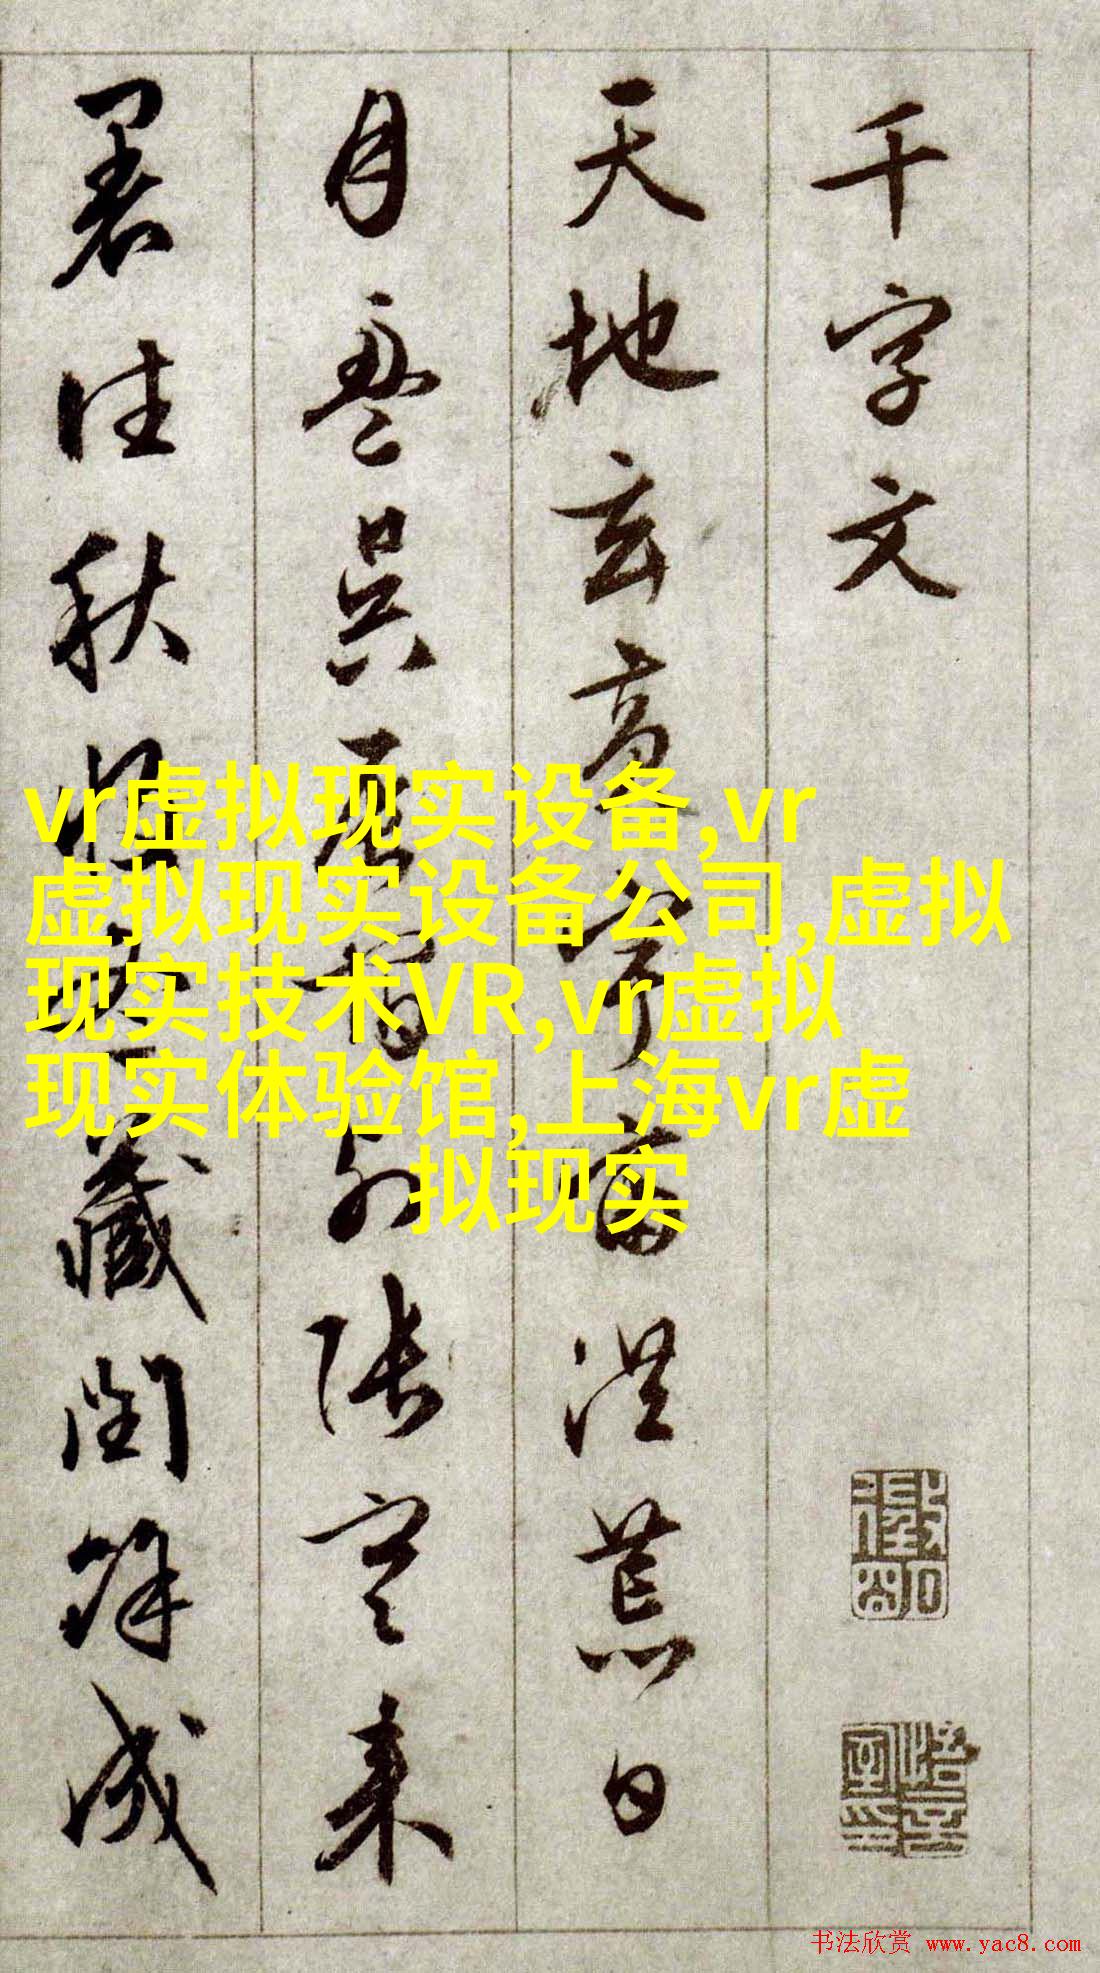 千字文
天地玄黃宇宙洪荒日
月盈昃辰宿列張寒来
暑往秋收冬藏閏餘成
vr虚拟现实设备,vr
虚拟现实设备公司,虚拟
现实技术VR,vr虚拟
现实体验馆,上海vr虚
拟现实
书法欣赏 www.yac8.com